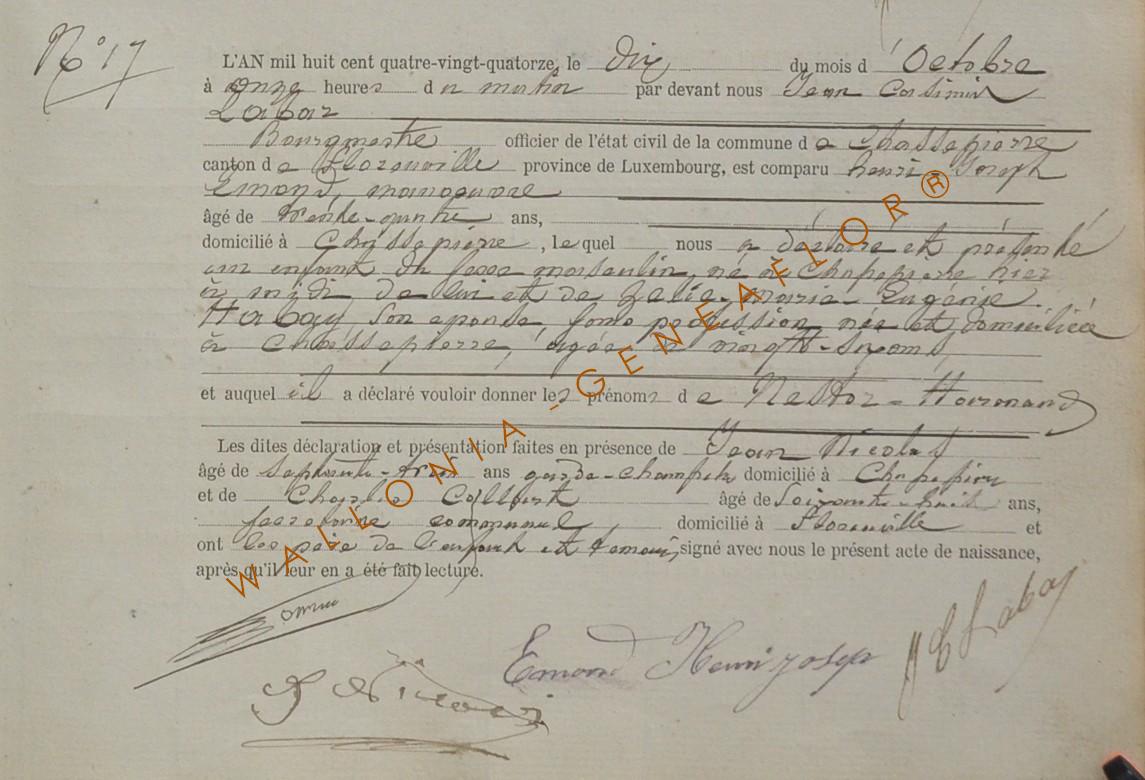 N° 17
L'AN mil huit cent quatre-vingt-quatorze, le dix du mois d'Octobre
à onze heures du matin par devant nous Jean Casimir
Labar
Bourgmestre officier de l'état civil de la commune de Chassepierre
canton de Florenville province de Luxembourg, est comparu henri Joseph
Emond, manoeuvre
âgé de trente-quatre ans,
domicilié à Chassepierre, lequel nous a déclaré et présenté
un enfant du sexe masculin, né à Chassepierre hier
à midi, de lui et de Zélie-Marie-Eugénie
Habay son épouse, sans profession, née et domiciliée
à Chassepierre, âgée de vingt-six ans,
et auquel il a déclaré vouloir donner les prénoms de Nestor-Harmand
Les dites déclaration et présentation faites en présence de Jean Nicolas
âgé de septante-trois ans garde-champêtre domicilié à Chassepierre
et de Charles Colbert âgé de Soixante-huit ans,
secrétaire communal, domicilié à Florenville et
ont les père de l'enfant et témoins signé avec nous le présent acte de naissance,
après qu'il leur en a été fait lecture.
Emond Henri Joseph
WALLONIA-GENEAFLOR®